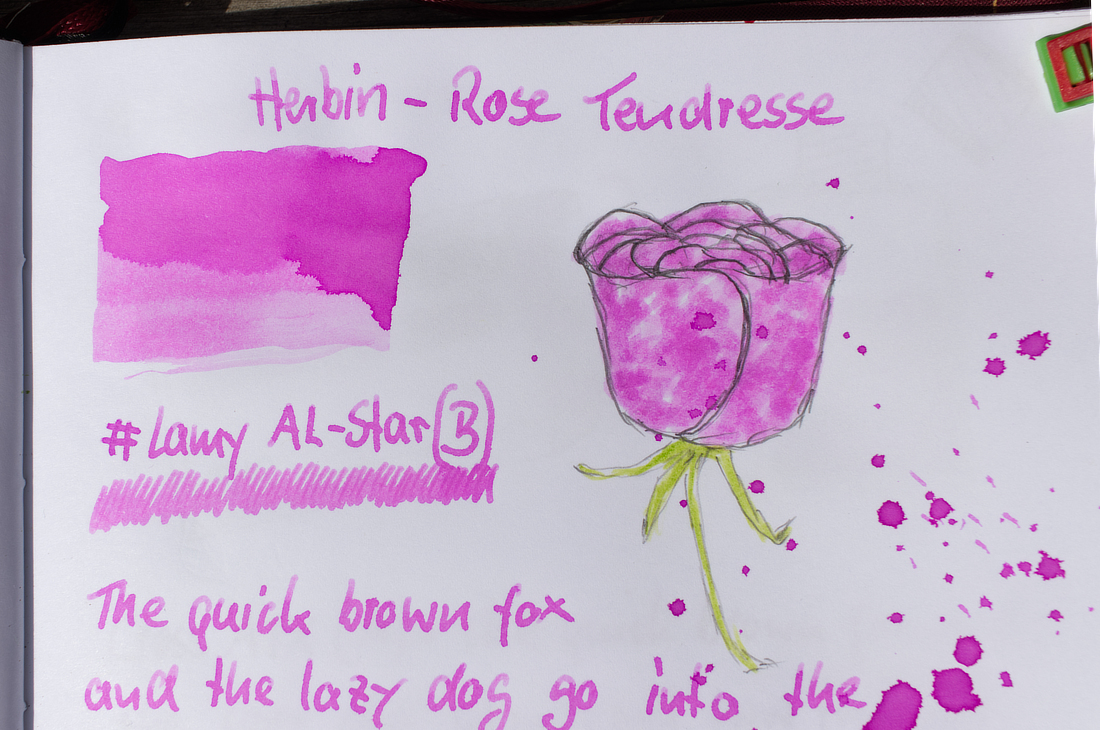 Herbin - Rose Tendresse
#Lamy AL-Star (B)
The quick brown fox
and the lazy dog go into the